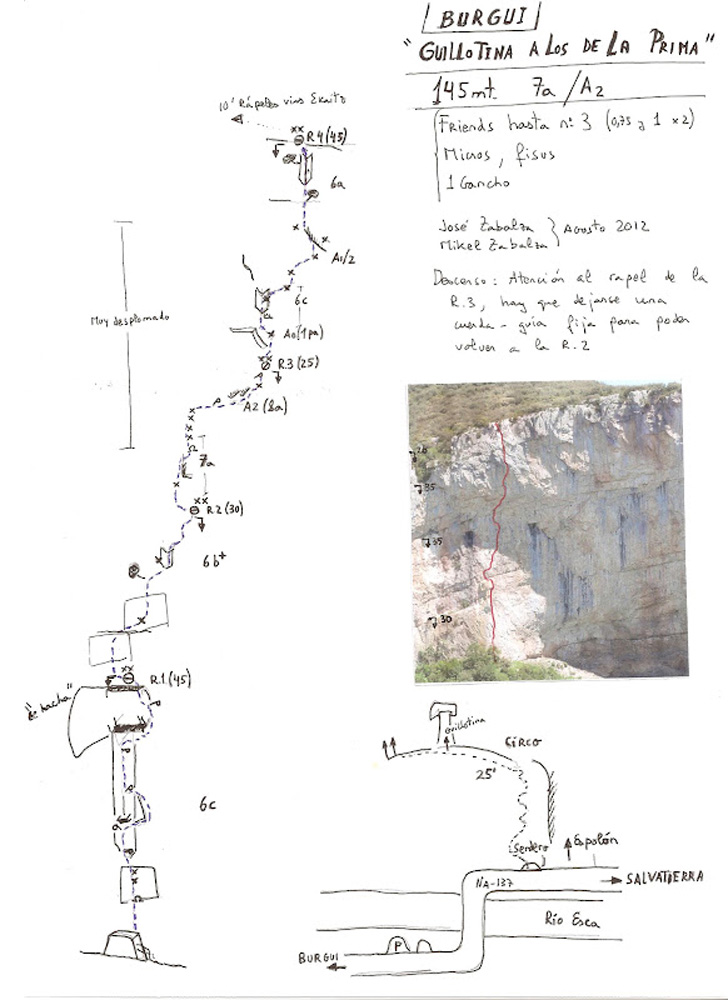 BURGUI
"GUILLOTINA A LOS DE LA PRIMA"
145mt. 7a/A2
Friends hasta nº 3 (0,75 y 1 x2)
Micros, fisus
1 Gancho
José Zabalza
Mikel Zabalza
Agosto 2012
Descenso: Atención al rapel de la
R.3, hay que dejarse una
cuerda-guía fija para poder
volver a la R.2
10' Rápeles vias Exaito
R4 (45)
6a
A1/2
6c
A0 (1pa)
Muy desplomado
R.3 (25)
A2 (8a)
7a
R2 (30)
6b+
R.1 (45)
"el hacha"
6c
20
35
35
30
Guillotina
CIRCO
25'
Sendero
Espolón
NA-137
SALVATIERRA
Río Esca
P
BURGUI